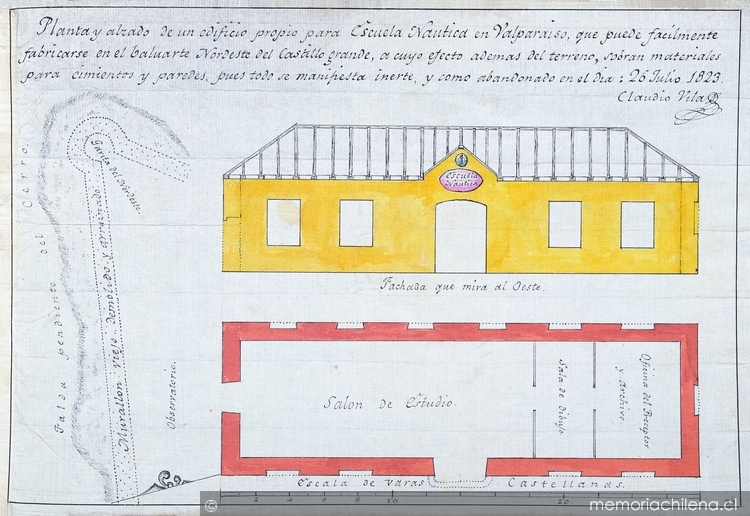 Planta y alzado de un edificio propio para Escuela Nautica en Valparaiso, que puede facilmente
fabricarse en el baluarte Nordeste del Castillo grande, a cuyo efecto ademas del terreno, sobran materiales
para cimientos y paredes, pues todo se manifiesta inerte, y como abandonado en el dia: 26 Julio 1823.
Claudio Vila
Falda pendiente del Cerro
Garita del Nordeste
Murallon viejo demolido y arruinado
Observatorio.
Escuela
Náutica
Fachada que mira al Oeste.
Salon de Estudio.
Sala de Dibujo
Oficina del Preceptor
y Archivo
Escala de varas Castellanas.
2 4 6 8 10 20
© memoriachilena.cl